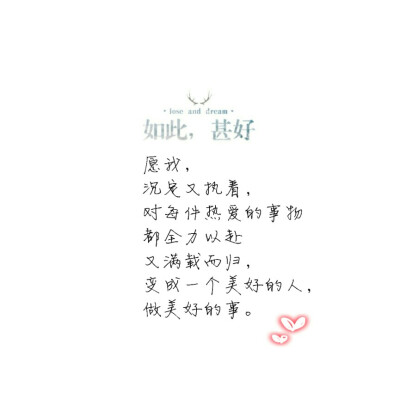 · lose and dream ·
如此，甚好
愿我，
沉宅又执着，
对每件热爱的事物
都全力以赴
又满载而归，
变成一个美好的人，
做美好的事。